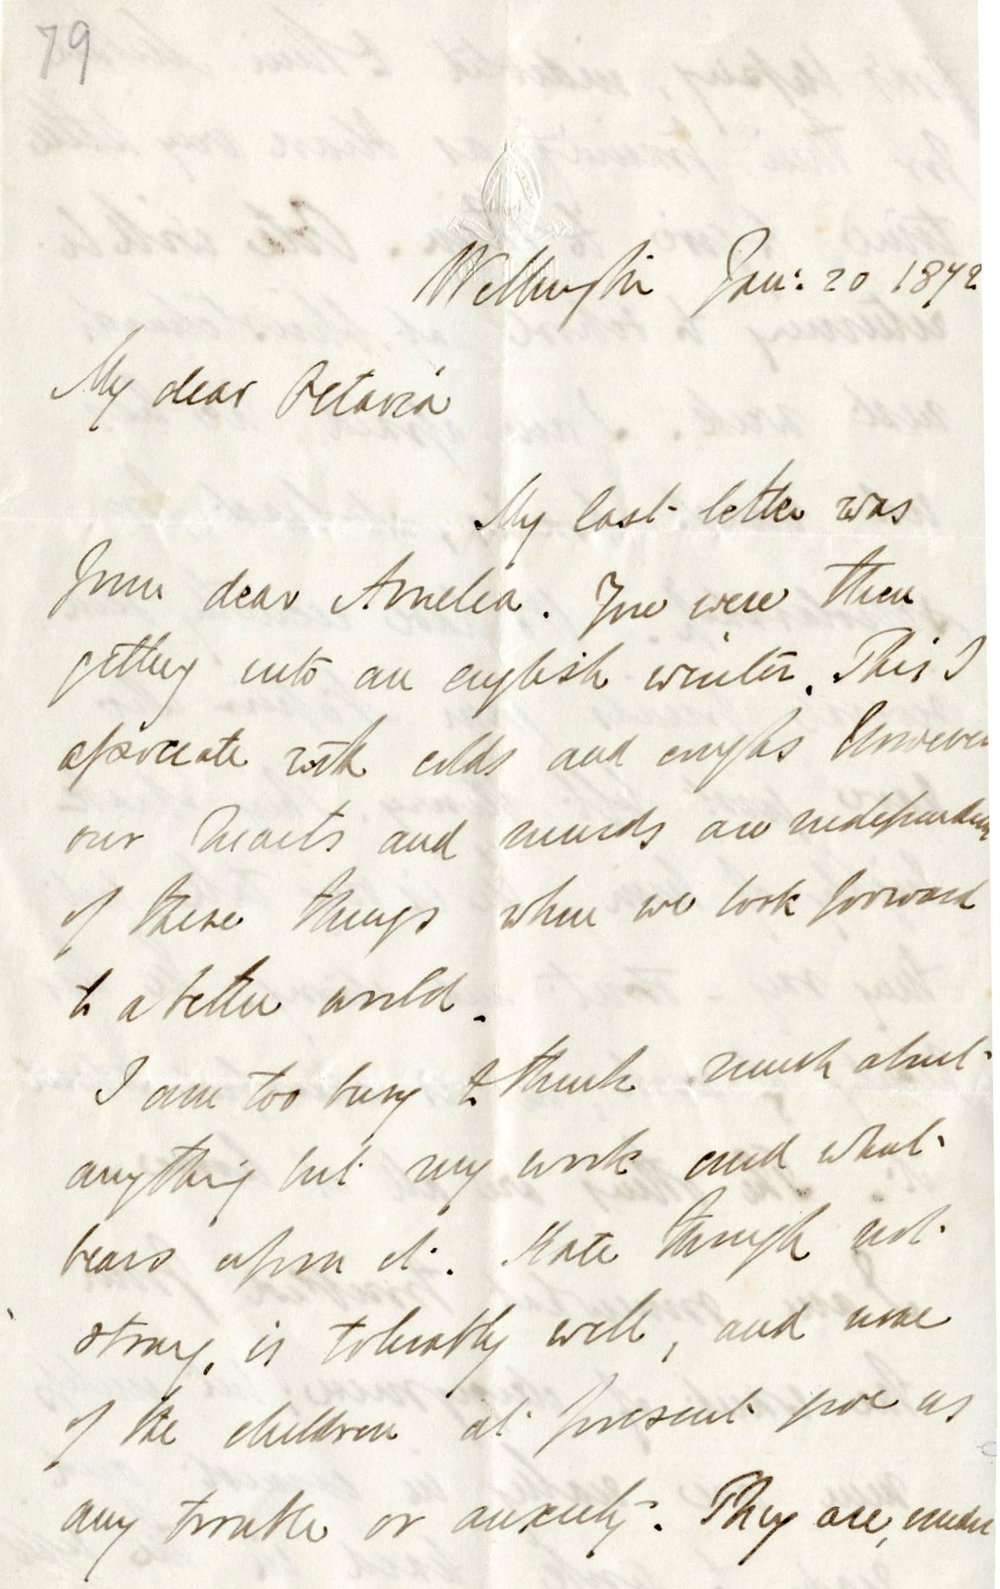 79
Wellington Jan: 20 1872
My dear Octavia
My last letter was
from dear Amelia. You were then
getting into an english winter. This I
associate with colds and coughs However
our hearts and minds are independen
of these things when we look forward
to a better world.
I am too busy to think much about
anything but my work and what
bears upon it. Kate though not
strong, is tolerably well, and none
of the children at present give us
any trouble or anxiety. They are, under